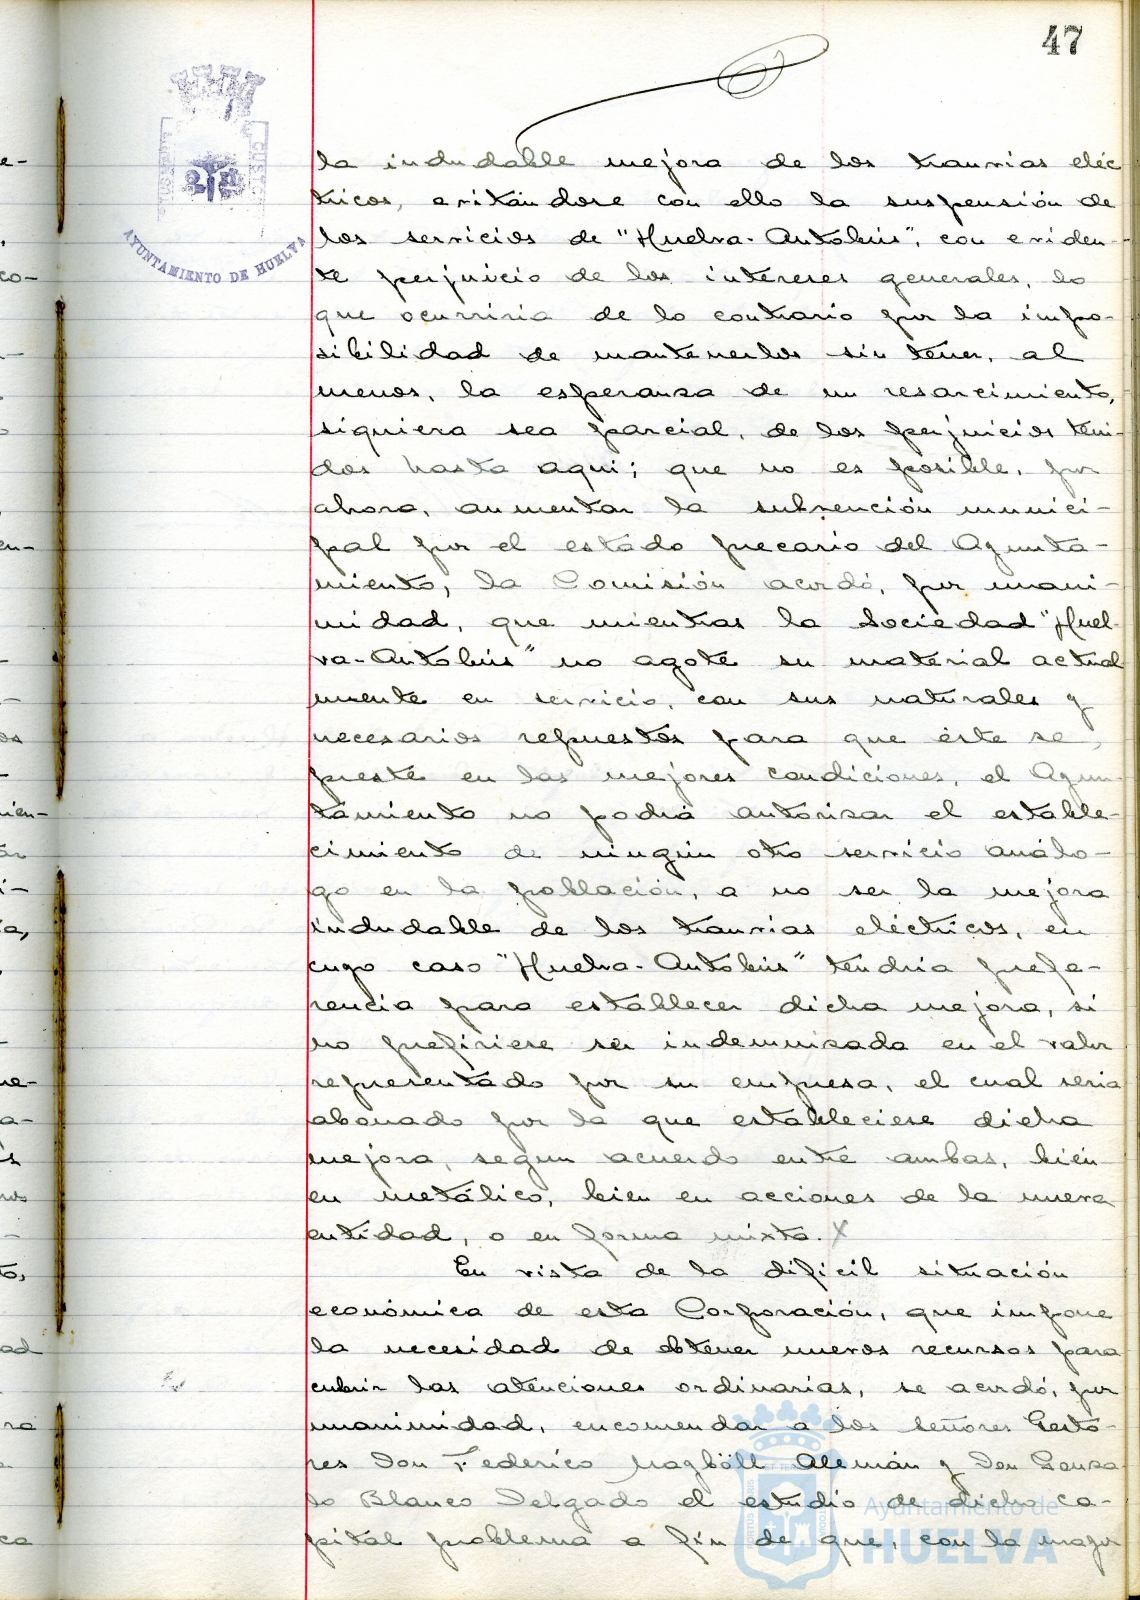 47
AYUNTAMIENTO DE HUELVA
la indudable mejora de los tranvias eléc
tricos, evitándose con ello la suspensión de
los servicios de "Huelva-Autobús", con eviden-
te perjuicio de los intereses generales, lo
que ocurriria de lo contrario por la impo-
sibilidad de mantenerlos sin tener, al
menos, la esperanza de un resarcimiento,
siquiera sea parcial, de los perjuicios teni-
dos hasta aqui; que no es posible, por
ahora, aumentar la subvención munici-
pal por el estado precario del Ayunta-
miento; la Comisión acordó, por unani-
midad, que mientras la Sociedad "Huel-
va-Autobús" no agote su material actual
mente en servicio, con sus naturales y
necesarios repuestos para que éste se
preste en las mejores condiciones, el Ayun-
tamiento no podrá autorizar el estable-
cimiento de ningún otro servicio análo-
go en la población, a no ser la mejora
indudable de los tranvias eléctricos, en
cuyo caso "Huelva-Autobús" tendria prefe-
rencia para establecer dicha mejora, si
no prefiriese ser indemnizada en el valor
representado por su empresa, el cual seria
abonado por la que estableciese dicha
mejora, segun acuerdo entre ambas, bien
en metálico, bien en acciones de la nueva
entidad, o en forma mixta. X
En vista de la dificil situación
económica de esta Corporación, que impone
la necesidad de obtener nuevos recursos para
cubrir las atenciones ordinarias, se acordó, por
unanimidad, encomendar a los señores Gesto-
res Don Federico Alemán y Don Gonza
lo Blanco Delgado el estudio de dicho ca-
pital problema a fin de que, con la mayor
Ayuntamiento de
HUELVA